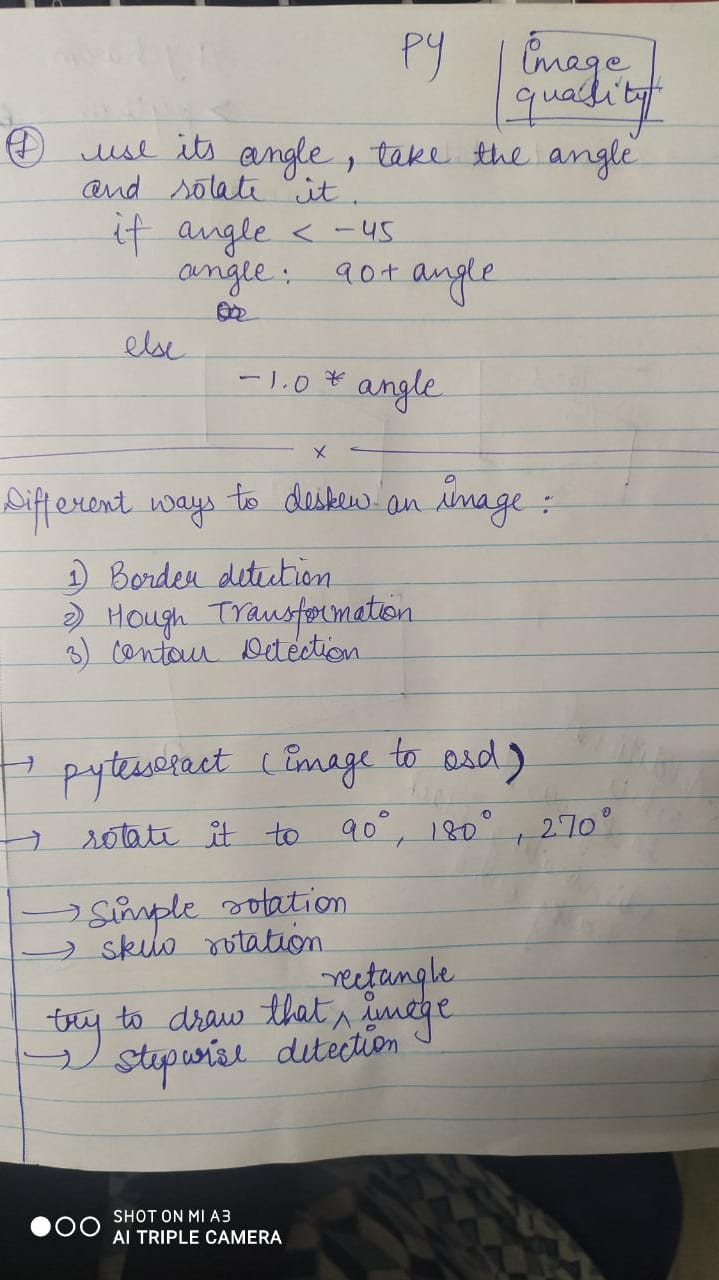 PY
image
quality
1 use its angle, take the angle
and rotate it.
if angle < -45
angle: 90+ angle
else
-1.0 * angle
x
Different ways to deskew an image :
1) Border detection
2) Hough Transformation
3) Contour Detection
→ pytesseract (image to osd)
→ rotate it to 90°, 180°, 270°
→ simple rotation
→ skew rotation
rectangle
try to draw that ^ image
→ stepwise detection
SHOT ON MI A3
AI TRIPLE CAMERA